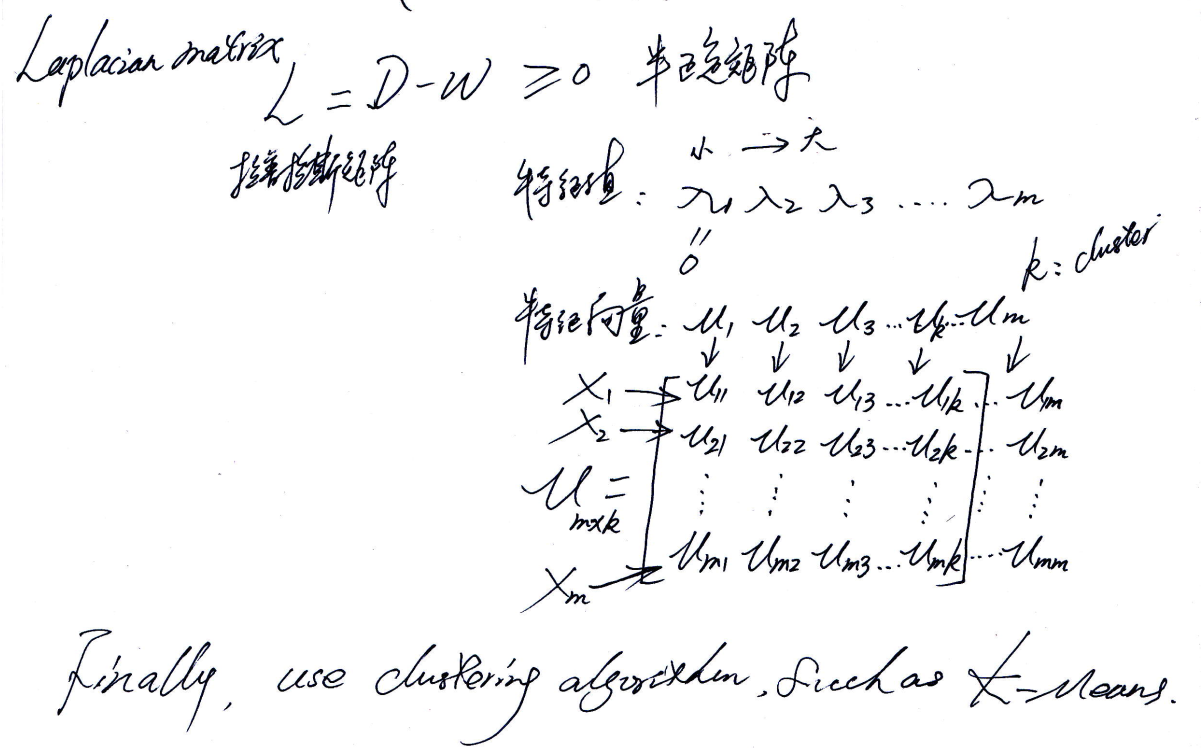 Laplacian matrix
L = D - W ≥ 0 半正定矩阵
拉普拉斯矩阵
小 → 大
特征值: λ1 λ2 λ3 .... λm
"
0
k: cluster
特征向量: u1 u2 u3 ... uk ... um
↓ ↓ ↓ ↓ ↓
X1 → [ u11 u12 u13 ... u1k ] ... u1m
X2 → u21 u22 u23 ... u2k ... u2m
U m×k = ⋮ ⋮ ⋮ ⋮ ⋮ ⋮
Xm → um1 um2 um3 ... umk ... umm
Finally, use clustering algorithm, Such as K-Means.